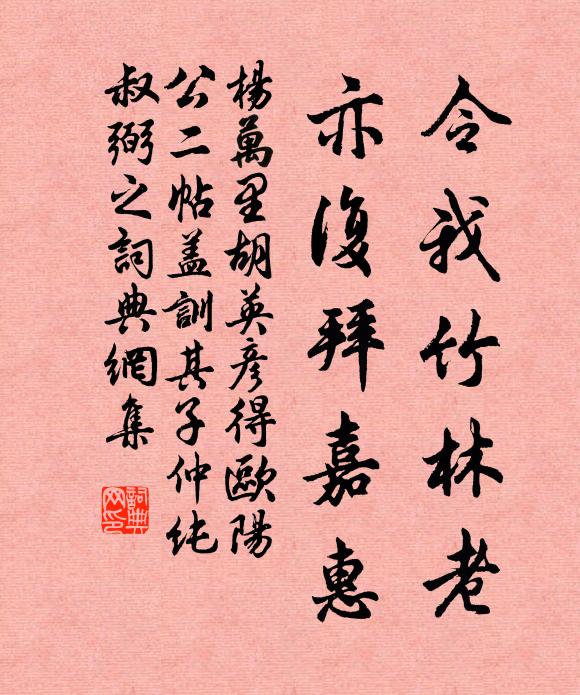 令我竹林老
亦復拜嘉惠
楊萬里胡英彥得歐陽
公二帖蓋訓其子仲純
叔弼之詞典網集
詞典
网印